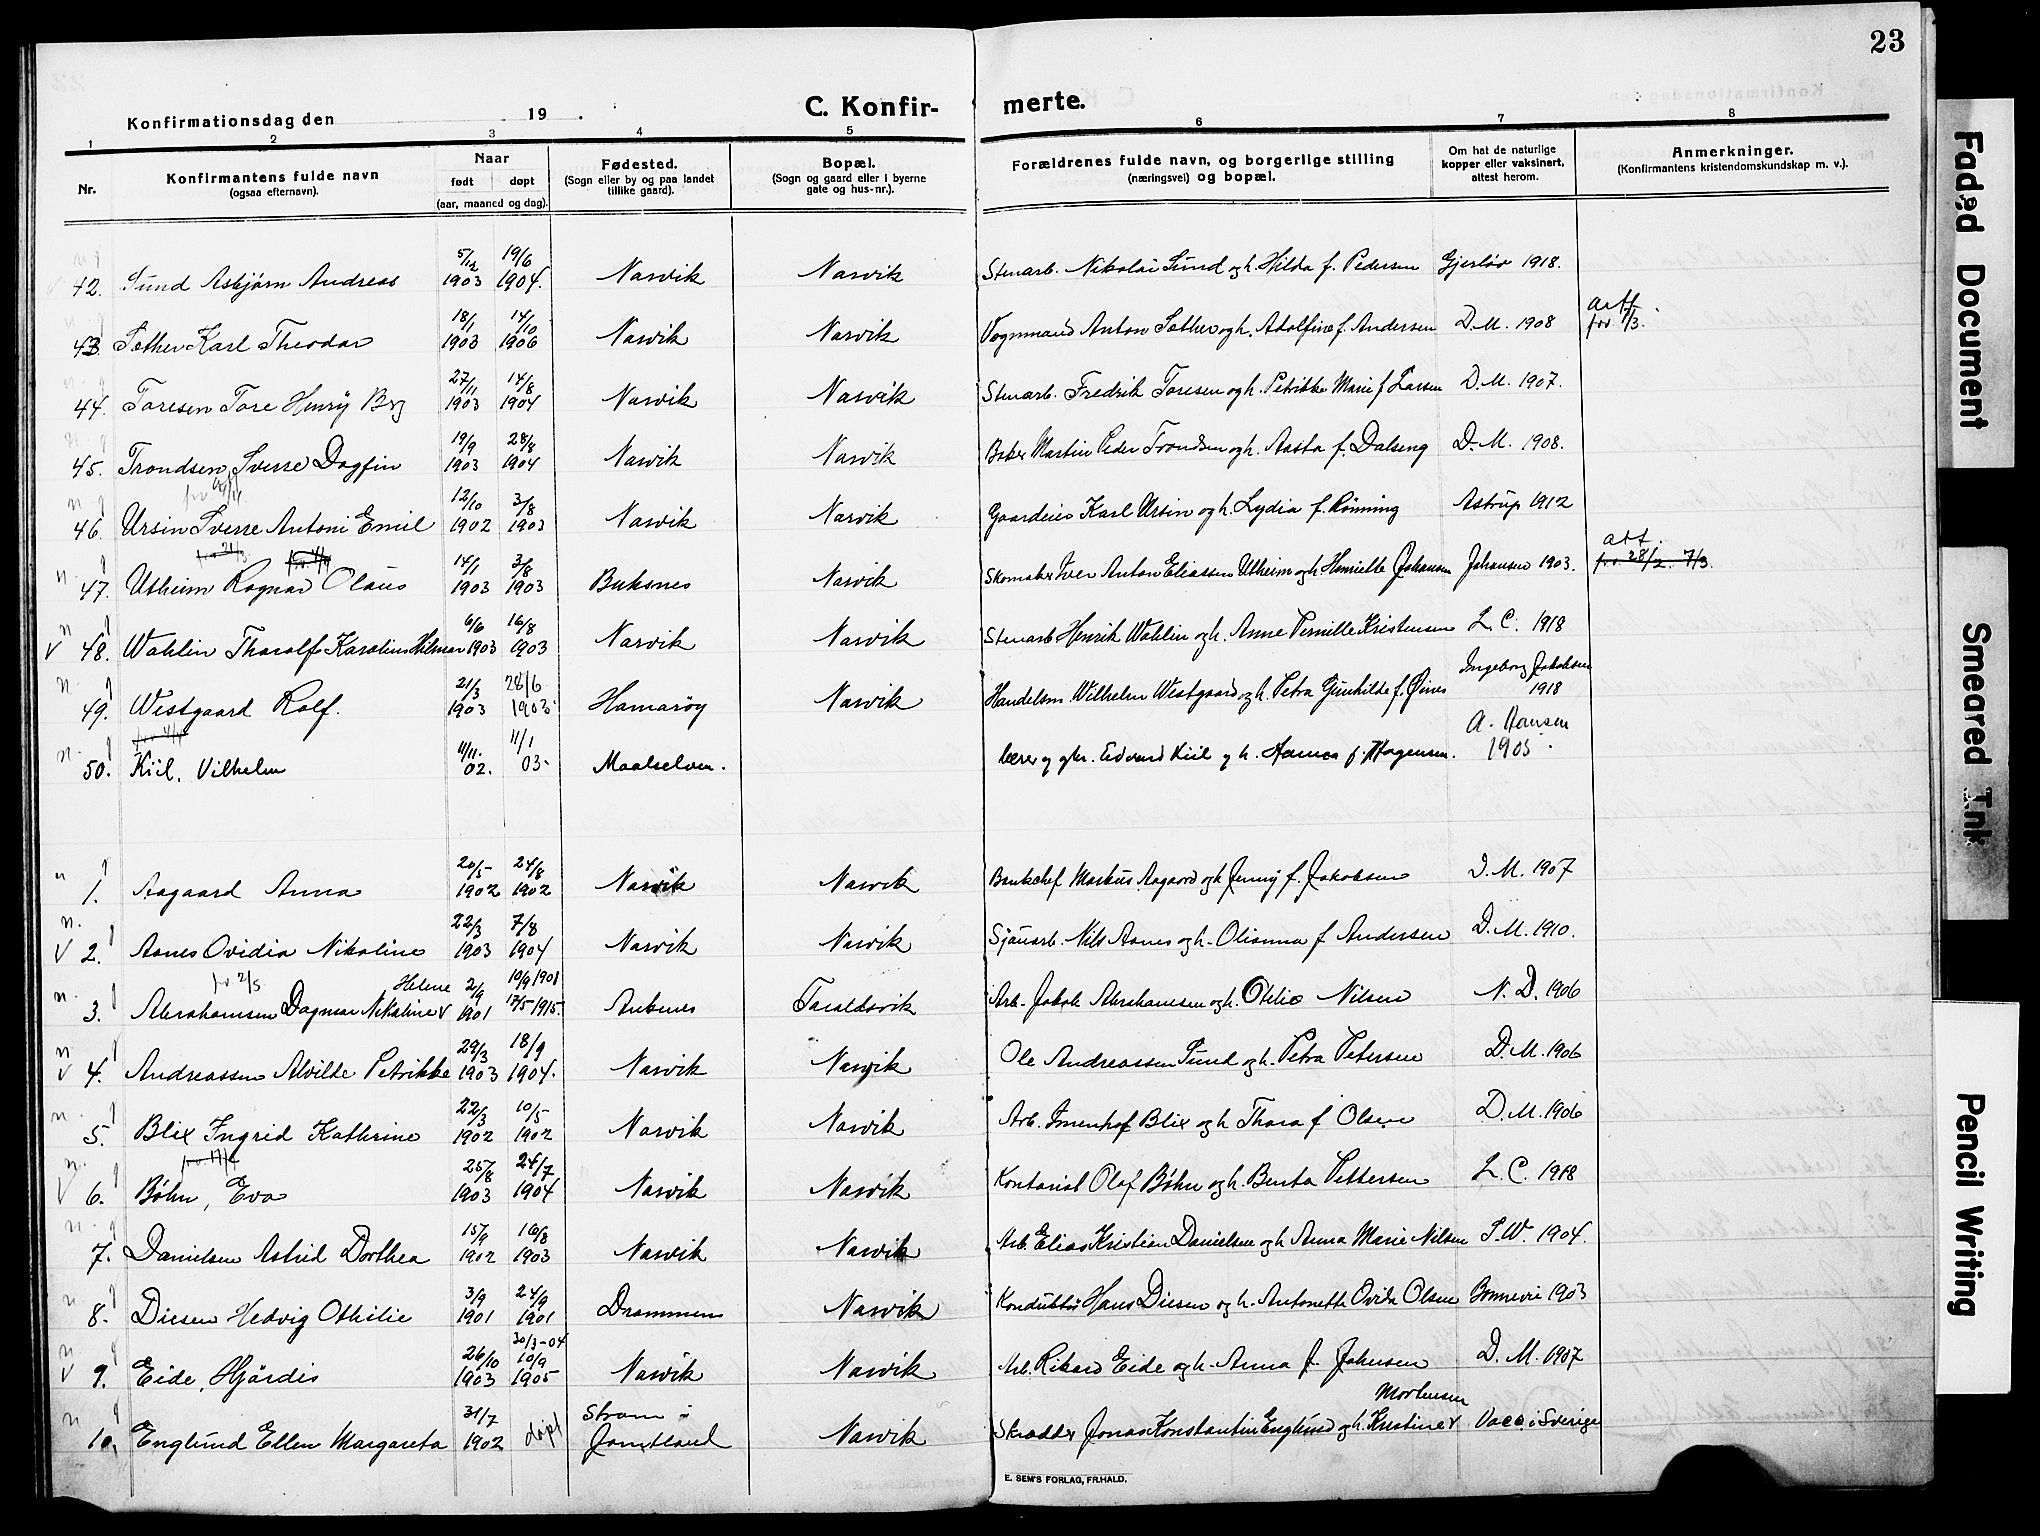 23
C. Konfirmerte.
Konfirmationsdag den 19 .
1 2 3 4 5 6 7 8
Nr. Konfirmantens fulde navn (ogsaa efternavn). Naar født døpt (aar, maaned og dag). Fødested. (Sogn eller by og paa landet tillike gaard). Bopæl. (Sogn og gaard eller i byerne gate og hus-nr.). Forældrenes fulde navn, og borgerlige stilling (næringsvei) og bopæl. Om hat de naturlige kopper eller vaksinert, attest herom. Anmerkninger. (Konfirmantens kristendomskundskap m. v.).
42. Sund Asbjørn Andreas 5/12 1903 19/6 1904. Narvik Narvik Stenarb. Nikolai Sund og h. Hilda f. Pedersen Gjerløv 1918.
43. Sæther Karl Theodor 18/1 1903 14/10 1906 Narvik Narvik Vognmand Anton Sæther og h. Adolfine f. Andersen D.M. 1908 att
44. Toresen Tore Henry Brg 27/11 1903 14/8 1904 Narvik Narvik Stenarb. Fredrik Toresen og h. Petrikke Marie f Larsen D.M. 1907.
45. Trondsen, Sverre Dagfin 19/9 1903 28/8 1904 Narvik Narvik Baker Martin Peder Trondsen og h. Aasta f. Dalseng D.M. 1908.
46. Ursin Sverre Antoni Emil 12/10 1902 3/8 1903 Narvik Narvik Gaardeier Karl Ursin og h. Lydia f. Rønning Astrup 1912
47. Utheim Ragnar Olaus 14/1 1903 3/8 1903 Buksnes Narvik Skomaker Iver Anton Eliassen Utheim og h. Henriette Johansen Johansen 1903. att. 28/2 7/3.
V 48. Wahlin Tharalf Karolius Hilmar 6/6 1903 16/8 1903 Narvik Narvik Stenarb Henrik Wahlin og h. Anne Pernille Kristensen L.C. 1918
49. Westgaard Rolf. 21/3 1903 28/6 1903 Hamarøy Narvik Handelsm. Wilhelm Westgaard og h. Petra Gunhilde f. Øines Ingeborg Jakobsen 1918
50. Kiil, Vilhelm 11/11. 02. 11/1 03. Maalselven. lærer og gbr. Edvard Kiil og h. Hanna f. Mogensen. A. Hansen 1903.
1. Aagaard Anna 20/5 1902 24/8 1902 Narvik Narvik Bankchef Markus Aagaard og h Jenny f. Jakobsen D.M. 1907
V 2. Aanes Ovidia Nikoline 22/3 1903 7/8 1904 Narvik Narvik Sjauarb. Nils Aanes og h. Olianna f Andersen D.M. 1910.
3. Abrahamsen Dagmar Nikoline Helene 2/9 1901 10/9 1901 17/5 1915. Ankenes Taraldsvik Arb. Jakob Abrahamsen og h. Otilie Nilsen N.D. 1906
V 4. Andreassen Alvilde Petrikke 29/3 1903 18/9 1904. Narvik Narvik Ole Andreassen Sund og h. Petra Petersen D.M. 1906
5. Blix Ingrid Kathrine 22/3 1902 10/5 1902 Narvik Narvik Arb. Imenhof Blix og h Thora f Olsen D.M. 1906
V 6. Bøhn, Eva 25/8 1903 24/7 1904 Narvik Narvik Kontorist Olaf Bøhn og h. Benta Pettersen L.C. 1918
7. Danielsen Astrid Dorthea 15/9 1902 16/8 1903 Narvik Narvik Arb. Elias Kristian Danielsen og h Anna Marie Nilsen S.W. 1904.
8. Diesen Hedvig Othilie 3/9 1901 24/9 1901 Drammen Narvik Konduktør Hans Diesen og h. Antonette Ovida Olsen Bonnevie 1903
V 9. Eide, Hjørdis 26/10 1903 30/3-04 10/9 1905 Narvik Narvik Arb. Rikard Eide og h. Anna f. Johnsen D.M. 1907
10. Englund Ellen Margareta 31/7 1902 døpt Strøm i Jämtland Narvik Skrædder Jonas Konstantin Englund og h. Kristine Mortensen Vacc. i Sverige
E. SEM'S FORLAG, FR.HALD.
Faded Document
Smeared Ink
Pencil Writing